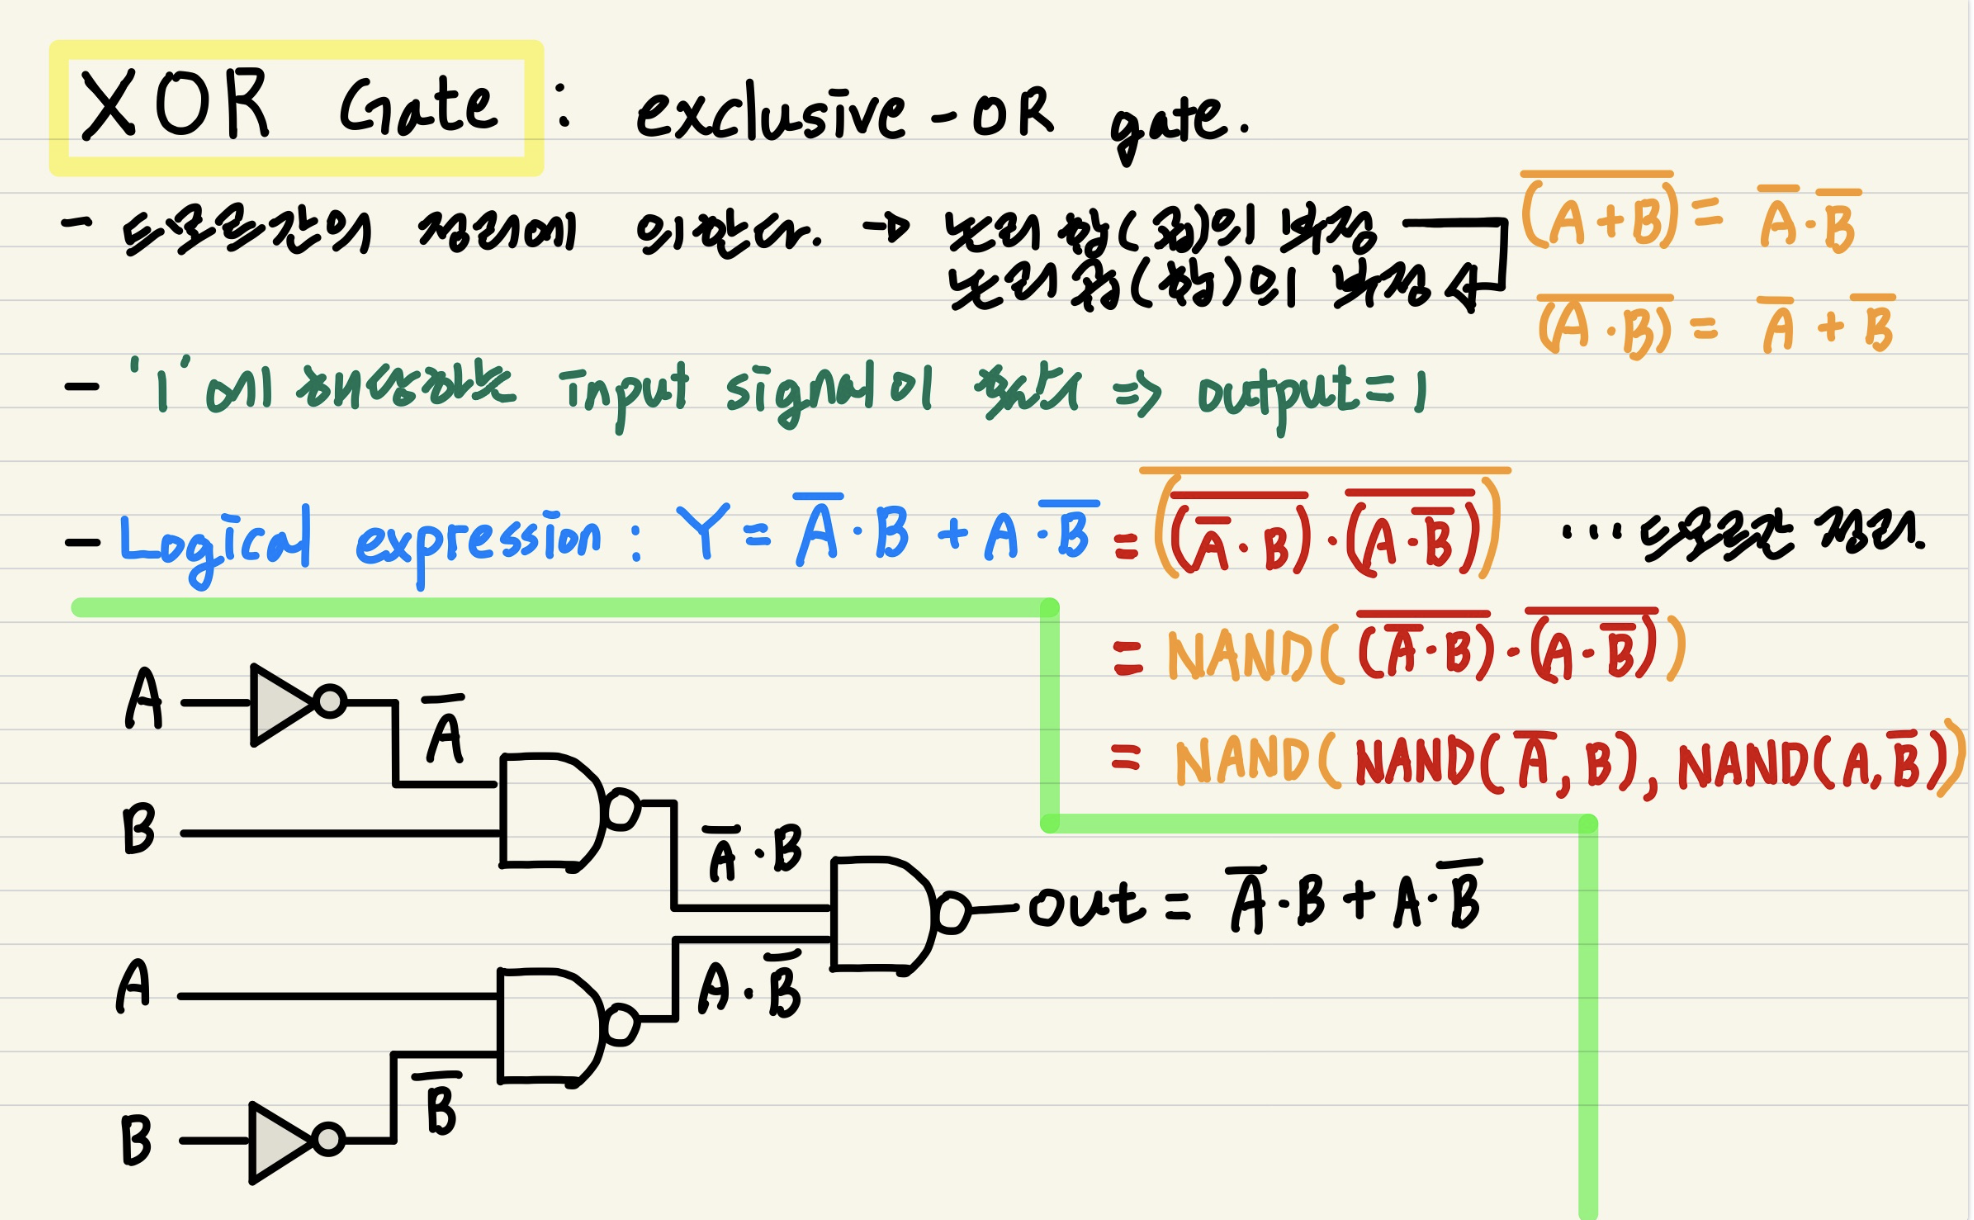 XOR Gate : exclusive-OR gate.
- 드모르간의 정리에 의한다. → 논리 합(곱)의 부정
논리 곱(합)의 부정
(A̅+̅B̅) = A̅·B̅
(A̅·̅B̅) = A̅ + B̅
- '1'에 해당하는 input signal이 홀수 ⇒ output = 1
- Logical expression : Y = A̅·B + A·B̅ = \overline{(\overline{(A̅·B)}·\overline{(A·B̅)})} ... 드모르간 정리.
= NAND(\overline{(A̅·B)}·\overline{(A·B̅)})
= NAND(NAND(A̅, B), NAND(A, B̅))
A
A̅
B
A̅·B
out = A̅·B + A·B̅
A
A·B̅
B̅
B